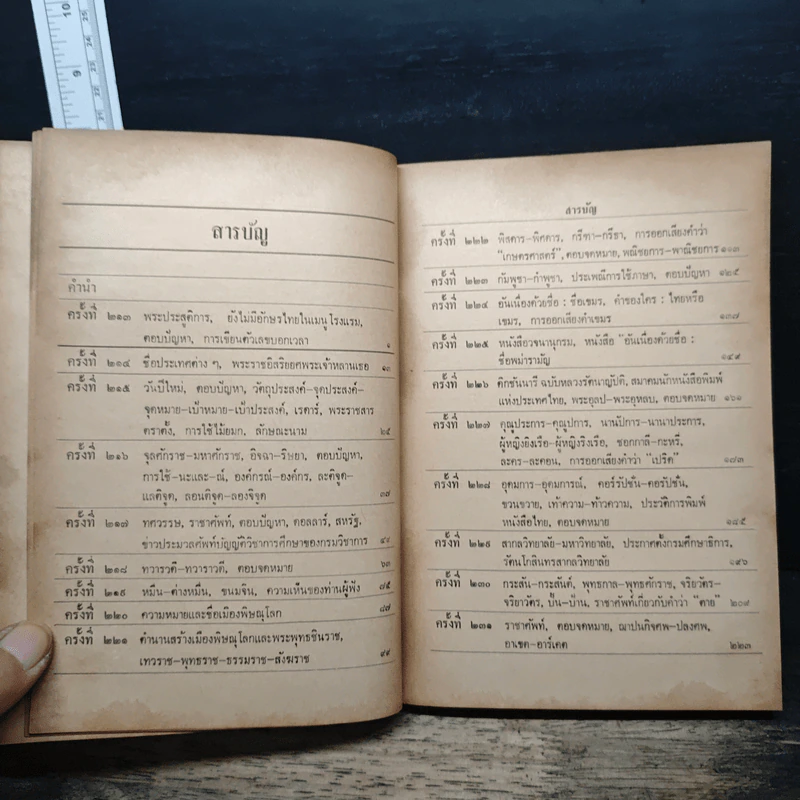 10
9
สารบัญ
คำนำ
ครั้งที่ ๒๑๓ พระประสูติการ, ยังไม่มีอักษรไทยในเมนูโรงแรม,
ตอบปัญหา, การเขียนตัวเลขบอกเวลา ๑
ครั้งที่ ๒๑๔ ชื่อประเทศต่าง ๆ, พระราชอิสริยยศพระเจ้าหลานเธอ ๑๓
ครั้งที่ ๒๑๕ วันปีใหม่, ตอบปัญหา, วัตถุประสงค์-จุดประสงค์-
จุดหมาย-เป้าหมาย-เป้าประสงค์, เรดาร์, พระราชสาร
ตราตั้ง, การใช้ไม้ยมก, ลักษณะนาม ๒๕
ครั้งที่ ๒๑๖ จุลศักราช-มหาศักราช, อิจฉา-ริษยา, ตอบปัญหา,
การใช้-นะและ-ณ์, องค์กรณ์-องค์กร, ละติจูด-
แลติจูด, ลองติจูด-ลองจิจูด ๓๗
ครั้งที่ ๒๑๗ ทศวรรษ, ราชาศัพท์, ตอบปัญหา, ดอลลาร์, สหรัฐ,
ข่าวประมวลศัพท์บัญญัติวิชาการศึกษาของกรมวิชาการ ๔๙
ครั้งที่ ๒๑๘ ทวารวดี-ทวาราวดี, ตอบจดหมาย ๖๓
ครั้งที่ ๒๑๙ หมื่น-ต่างหมื่น, ขนมจีน, ความเห็นของท่านผู้ฟัง ๗๕
ครั้งที่ ๒๒๐ ความหมายและชื่อเมืองพิษณุโลก ๘๗
ครั้งที่ ๒๒๑ ตำนานสร้างเมืองพิษณุโลกและพระพุทธชินราช,
เทวราช-พุทธราช-ธรรมราช-สังฆราช ๙๙
สารบัญ
ครั้งที่ ๒๒๒ พิสดาร-พิศดาร, กรีฑา-กรีธา, การออกเสียงคำว่า
"เกษตรศาสตร์", ตอบจดหมาย, พณิชยการ-พาณิชยการ ๑๑๓
ครั้งที่ ๒๒๓ กัมพูชา-กำพูชา, ประเพณีการใช้ภาษา, ตอบปัญหา ๑๒๕
ครั้งที่ ๒๒๔ อันเนื่องด้วยชื่อ : ชื่อเขมร, คำของใคร : ไทยหรือ
เขมร, การออกเสียงคำเขมร ๑๓๗
ครั้งที่ ๒๒๕ หนังสือวจนานุกรม, หนังสือ "อันเนื่องด้วยชื่อ :
ชื่อพม่ารามัญ ๑๔๙
ครั้งที่ ๒๒๖ ดิกชันนารี ฉบับหลวงรัตนาญัปติ, สมาคมนักหนังสือพิมพ์
แห่งประเทศไทย, พระอุลป-พระอุหลบ, ตอบจดหมาย ๑๖๑
ครั้งที่ ๒๒๗ คุณูประการ-คุณูปการ, นานัปการ-นานาประการ,
ผู้หญิงยิงเรือ-ผู้หญิงริงเรือ, ชอกกาลี-กะหรี่,
ละคร-ละคอน, การออกเสียงคำว่า "เปริต" ๑๗๓
ครั้งที่ ๒๒๘ อุดมการ-อุดมการณ์, คอร์รัปชั่น-คอรัปชั่น,
ชวนขวาย, เท้าความ-ท้าวความ, ประวัติการพิมพ์
หนังสือไทย, ตอบจดหมาย ๑๘๕
ครั้งที่ ๒๒๙ สากลวิทยาลัย-มหาวิทยาลัย, ประกาศตั้งกรมศึกษาธิการ,
รัตนโกสินทรสากลวิทยาลัย ๑๙๖
ครั้งที่ ๒๓๐ กระสัน-กระสันต์, พุทธกาล-พุทธศักราช, จริยวัตร-
จริยาวัตร, ปั้น-บ้าน, ราชาศัพท์เกี่ยวกับคำว่า "ตาย" ๒๐๙
ครั้งที่ ๒๓๑ ราชาศัพท์, ตอบจดหมาย, ฌาปนกิจศพ-ปลงศพ,
อาเขต-อาร์เคด ๒๒๓